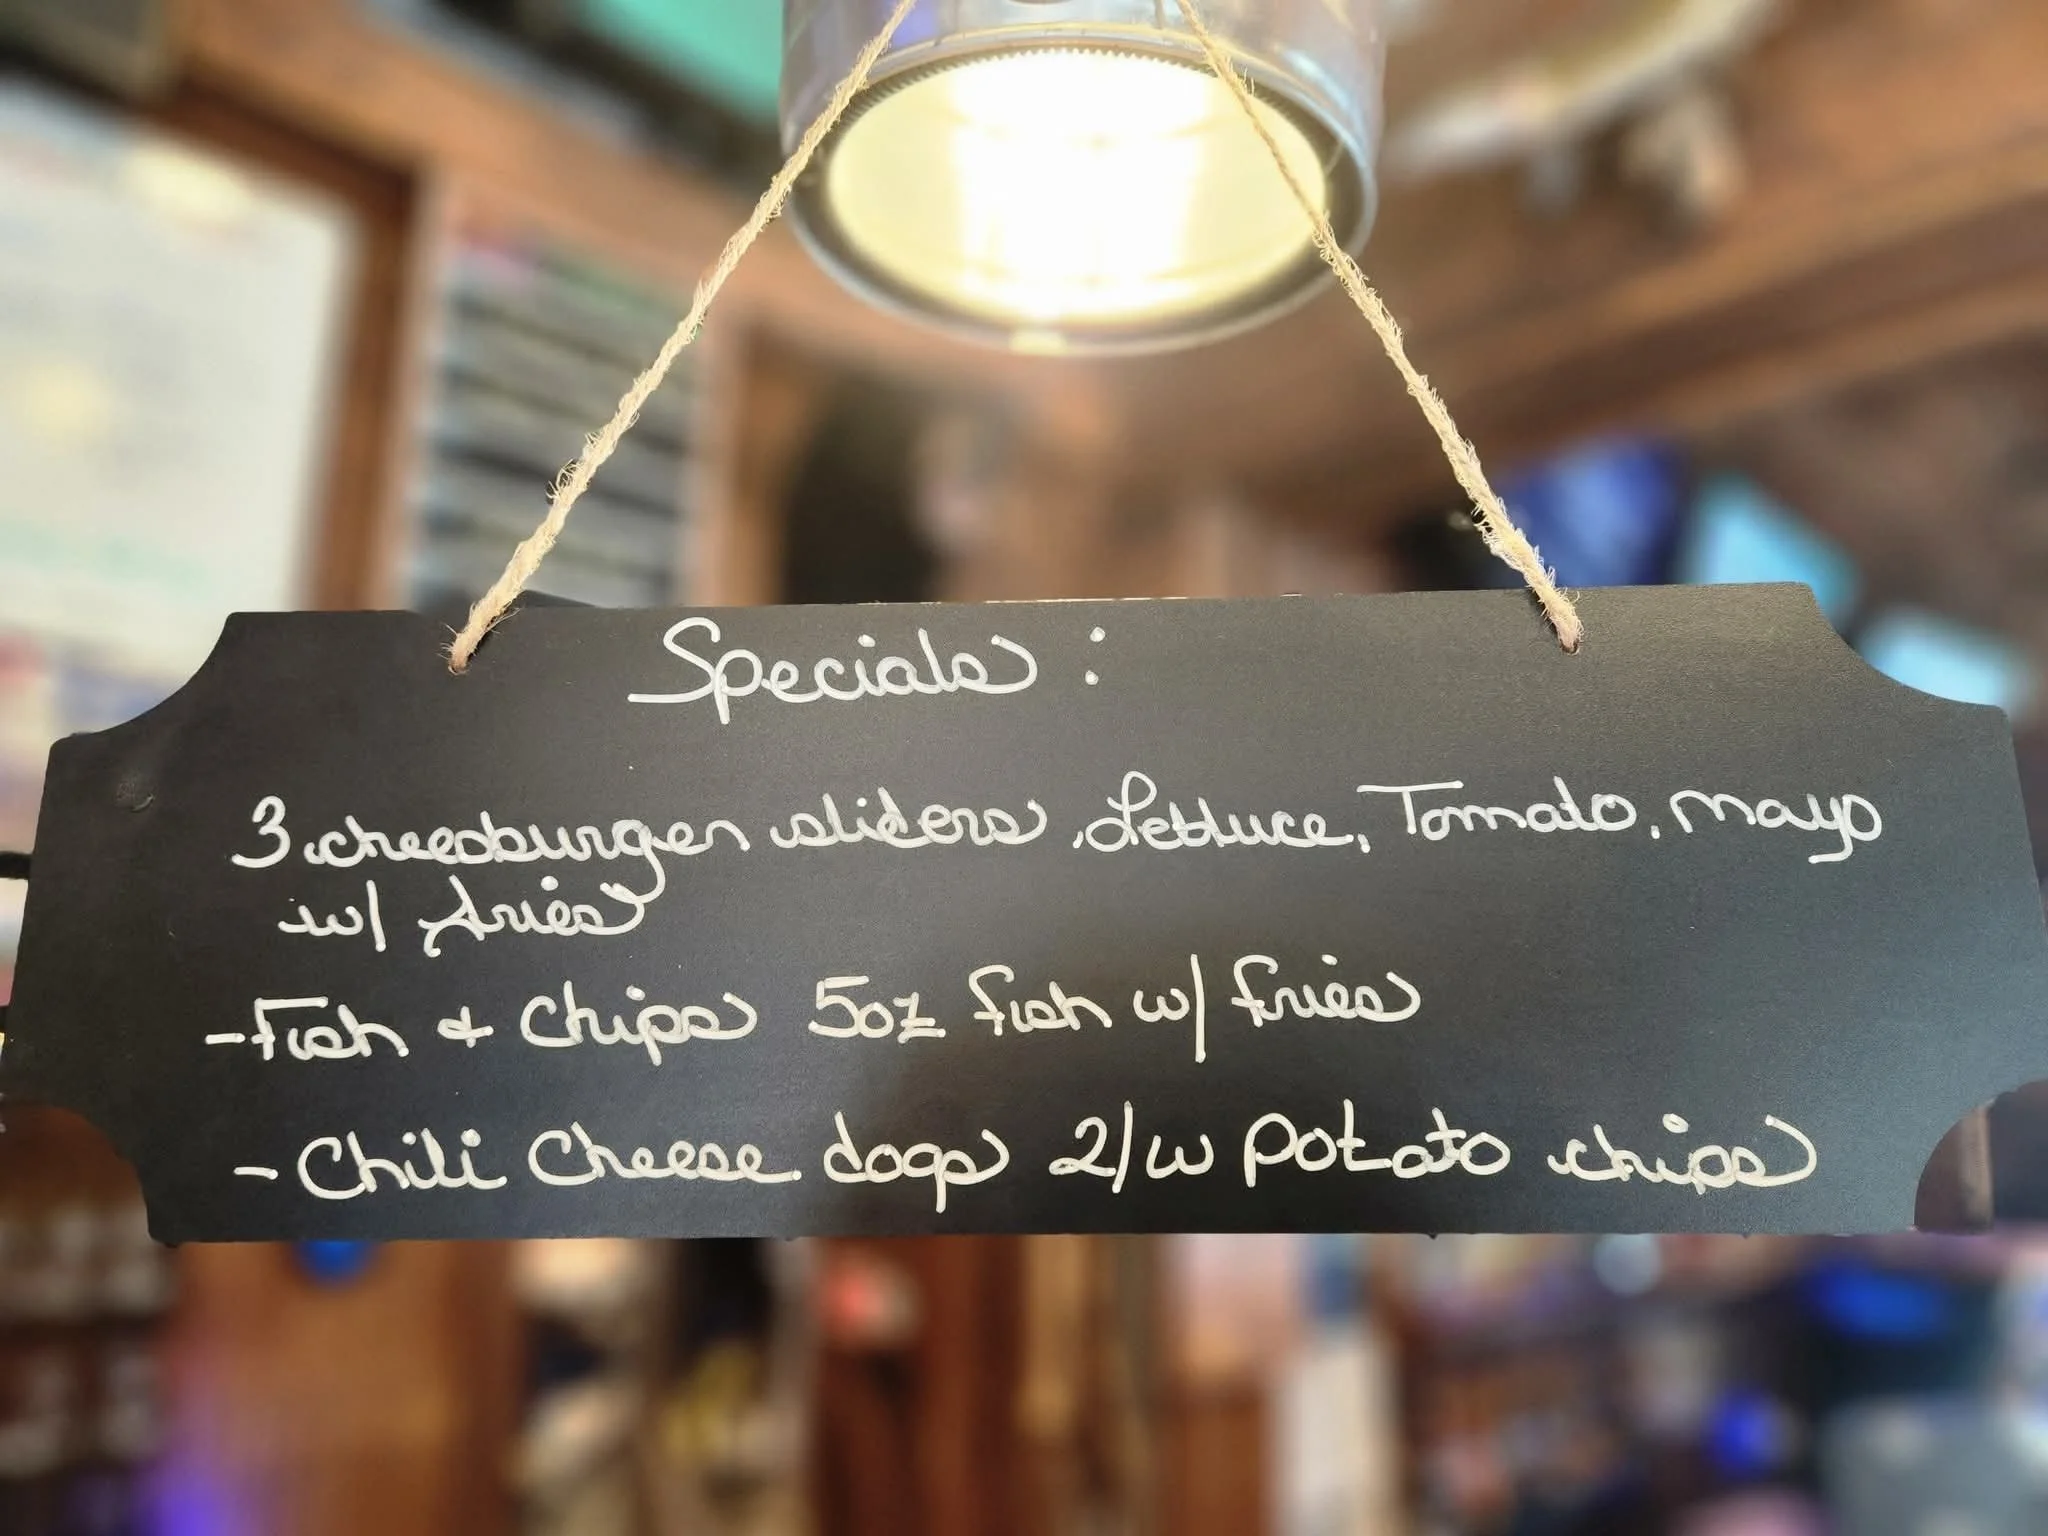 Specials :
3 cheesburger sliders, Lettuce, Tomato, mayo
w/ fries
-Fish & Chips 5oz fish w/ fries
- Chili Cheese dogs 2/w potato chips